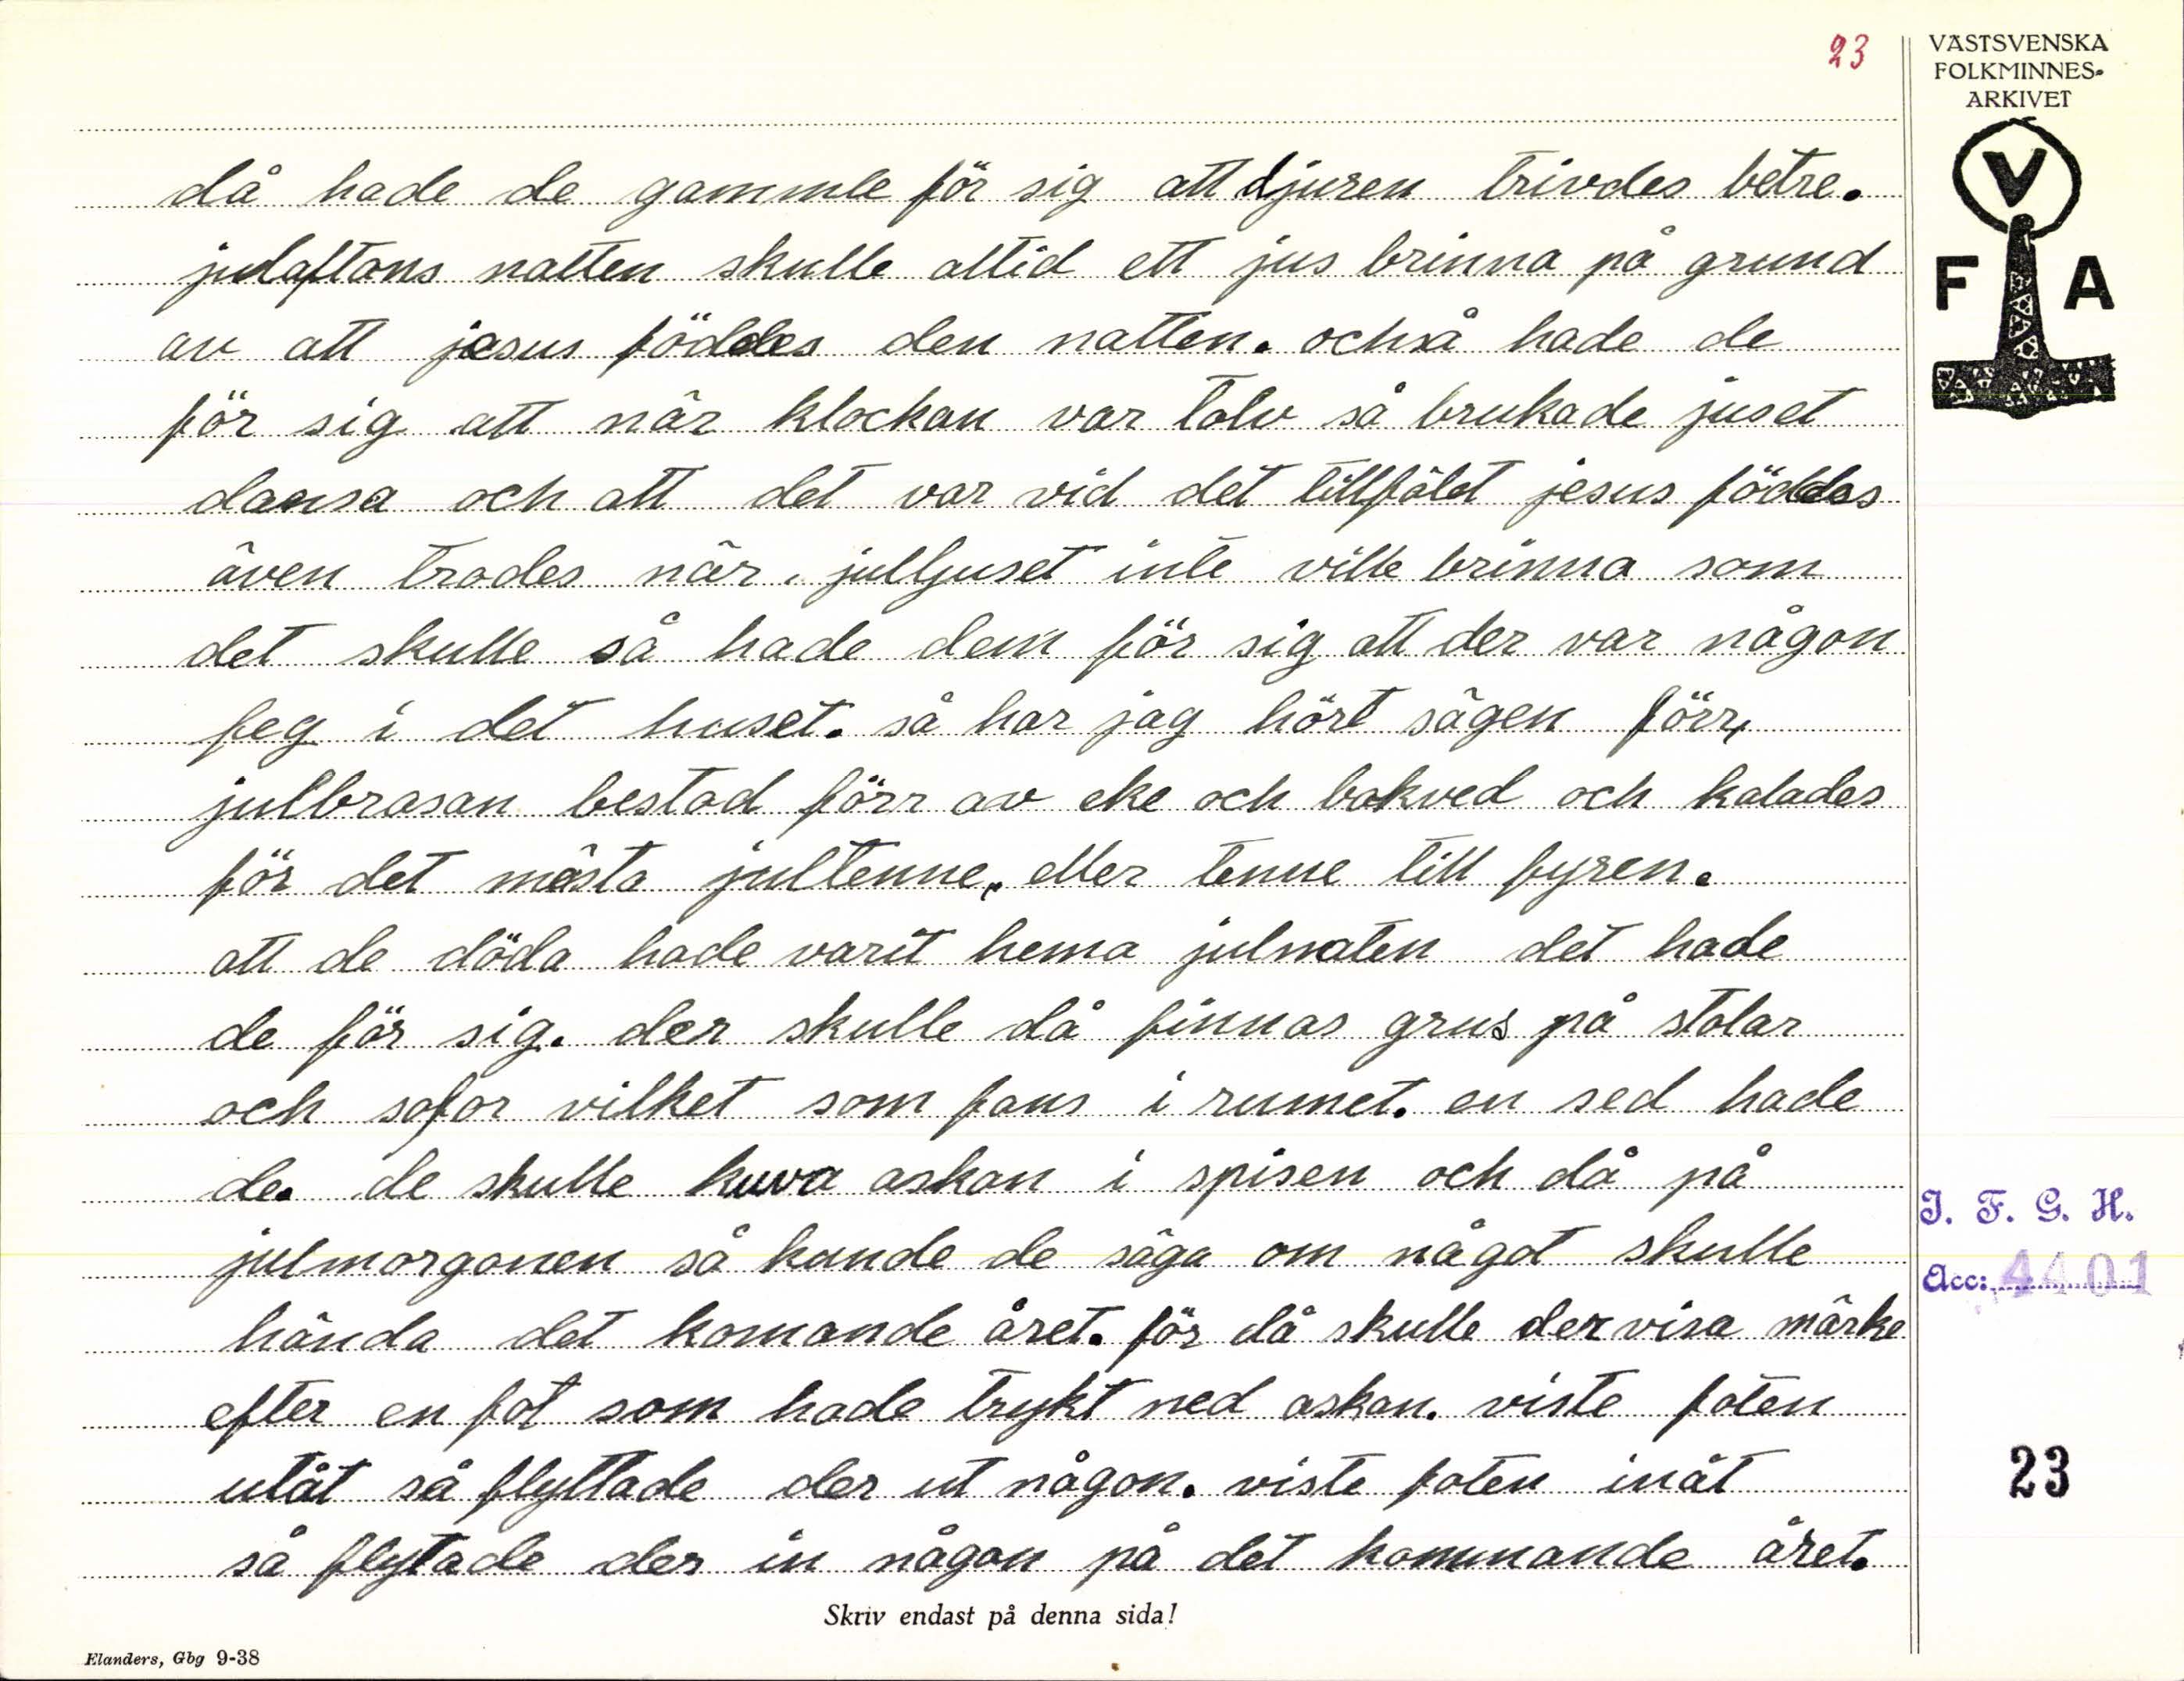 23
VÄSTSVENSKA
FOLKMINNES-
ARKIVET
V
F A
då hade de gammle för sig att djuren trivdes bätre.
julaftons natten skulle altid ett jus brinna på grund
av att jesus föddes den natten. också hade de
för sig att när klockan var tolv så brukade juset
dansa och att det var vid det tillfälet jesus föddes
även trodes när julljuset inte ville brinna som
det skulle så hade dem för sig att der var någon
feg i det huset. så har jag hört sägen förr,
julbrasan bestod förr av eke och bokved och kalades
för det mästa jultenne, eller tenne till fyren.
att de döda hade varit hema julnaten det hade
de för sig. der skulle då finnas grus på stolar
och sofor vilket som fans i rumet. en sed hade
de. de skulle kuva askan i spisen och då på
julmorgonen så kunde de säga om något skulle
hända det komande året. för då skulle der visa märke
efter en fot som hade trykt ned askan. viste foten
utåt så flyttade der ut någon. viste foten inåt
så flytade der in någon på det kommande året.
I. F. G. H.
Acc: 4401
23
Skriv endast på denna sida!
Elanders, Gbg 9-38